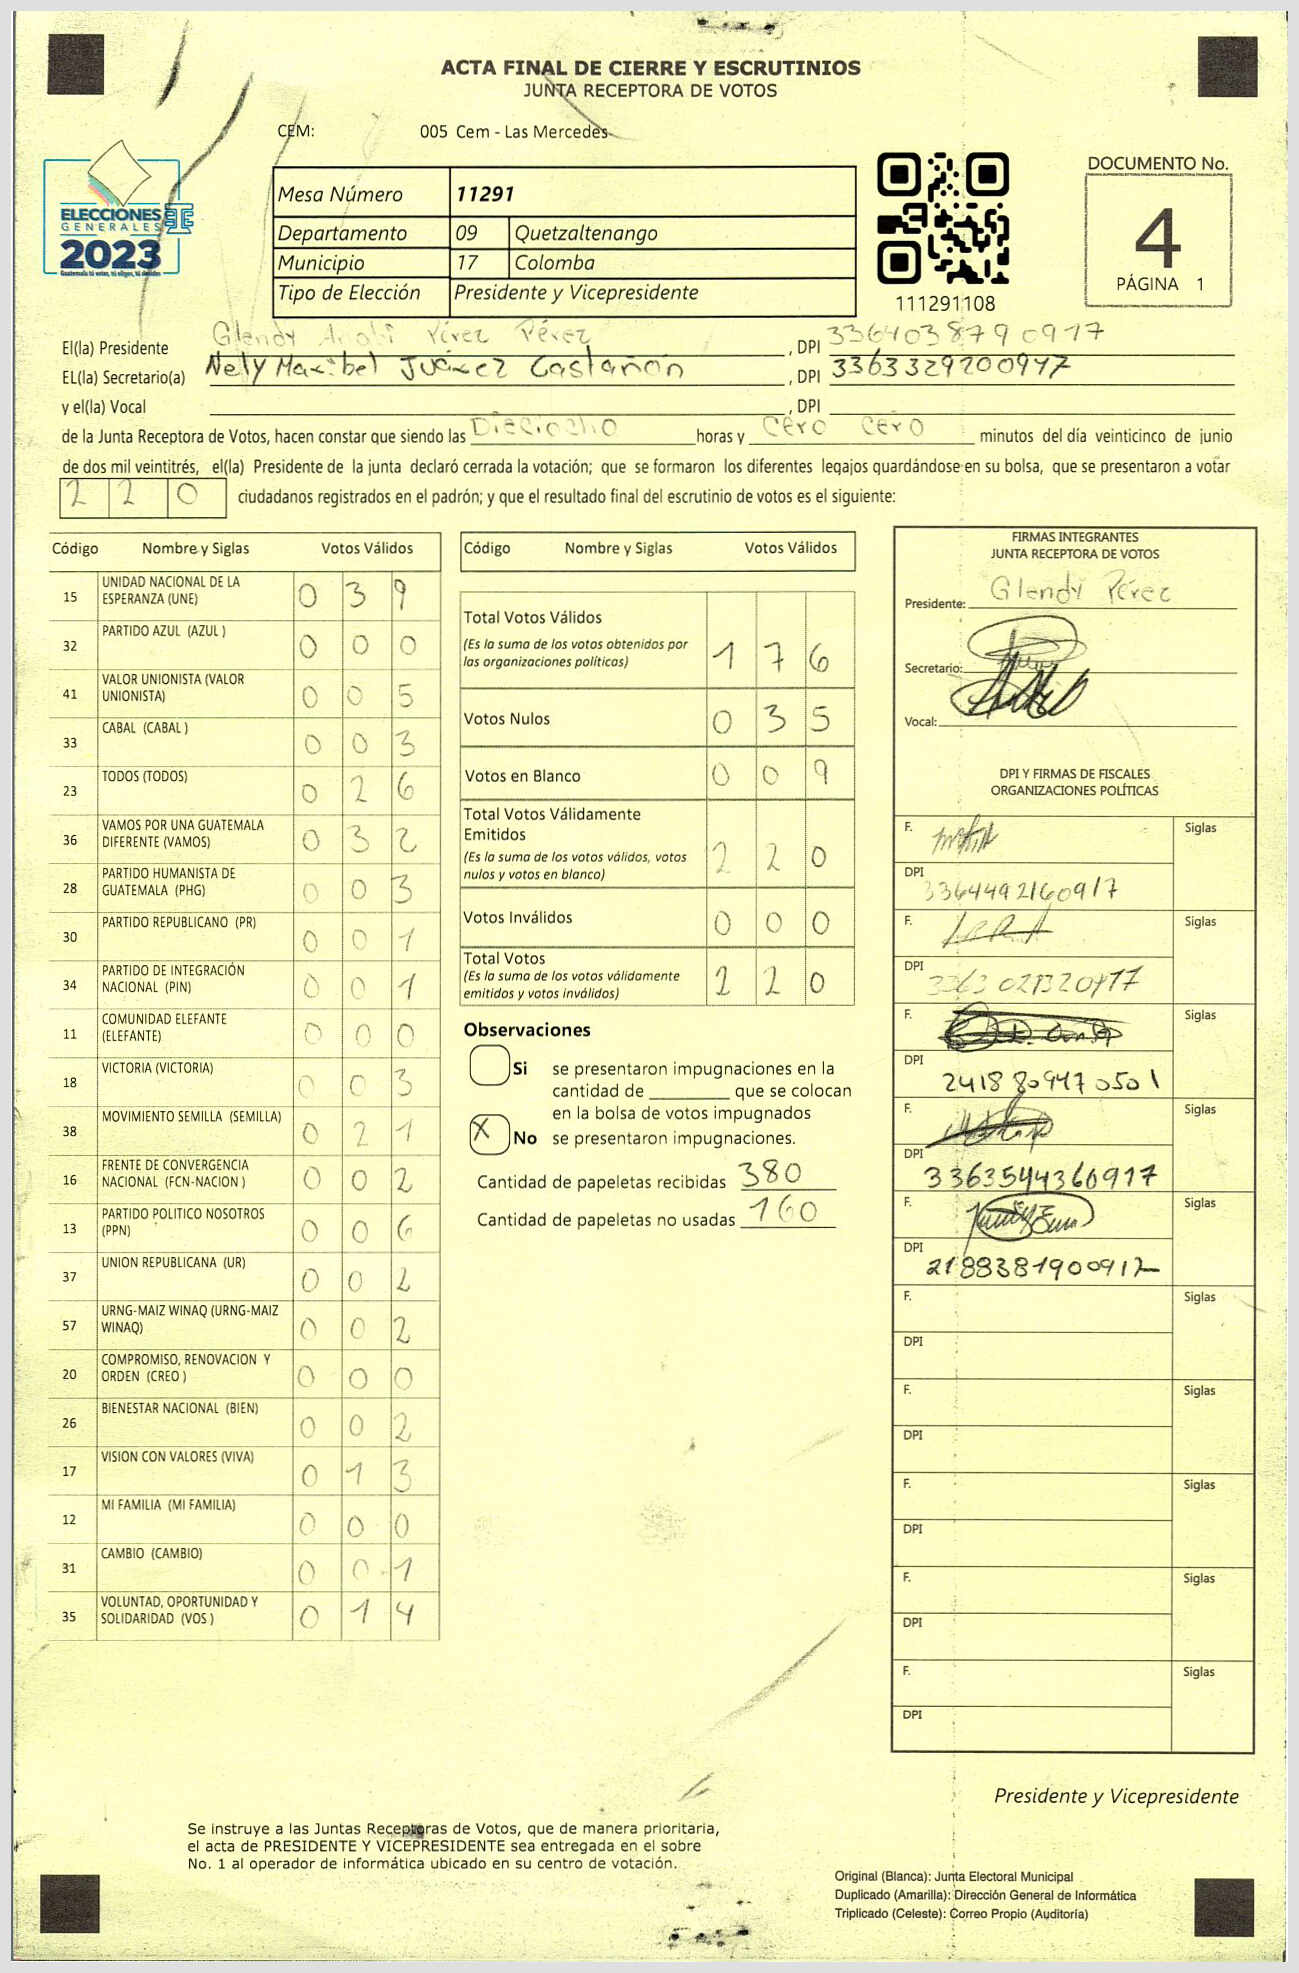 ACTA FINAL DE CIERRE Y ESCRUTINIOS
JUNTA RECEPTORA DE VOTOS
CEM: 005 Cem - Las Mercedes
ELECCIONES
GENERALES
2023
Guatemala tú votas, tú eliges, tú decides
Mesa Número 11291
Departamento 09 Quetzaltenango
Municipio 17 Colomba
Tipo de Elección Presidente y Vicepresidente
111291108
DOCUMENTO No.
4
PÁGINA 1
El(la) Presidente Glendy Pérez Pérez, DPI 3364038790917
EL(la) Secretario(a) Nely Maribel Juárez Castañón, DPI 3363329200947
y el(la) Vocal , DPI
de la Junta Receptora de Votos, hacen constar que siendo las Dieciocho horas y cero cero minutos del día veinticinco de junio
de dos mil veintitrés, el(la) Presidente de la junta declaró cerrada la votación; que se formaron los diferentes legajos guardándose en su bolsa, que se presentaron a votar
2 2 0 ciudadanos registrados en el padrón; y que el resultado final del escrutinio de votos es el siguiente:
Código Nombre y Siglas Votos Válidos
15 UNIDAD NACIONAL DE LA ESPERANZA (UNE) 0 3 9
32 PARTIDO AZUL (AZUL ) 0 0 0
41 VALOR UNIONISTA (VALOR UNIONISTA) 0 0 5
33 CABAL (CABAL ) 0 0 3
23 TODOS (TODOS) 0 2 6
36 VAMOS POR UNA GUATEMALA DIFERENTE (VAMOS) 0 3 2
28 PARTIDO HUMANISTA DE GUATEMALA (PHG) 0 0 3
30 PARTIDO REPUBLICANO (PR) 0 0 1
34 PARTIDO DE INTEGRACIÓN NACIONAL (PIN) 0 0 1
11 COMUNIDAD ELEFANTE (ELEFANTE) 0 0 0
18 VICTORIA (VICTORIA) 0 0 3
38 MOVIMIENTO SEMILLA (SEMILLA) 0 2 1
16 FRENTE DE CONVERGENCIA NACIONAL (FCN-NACION ) 0 0 2
13 PARTIDO POLITICO NOSOTROS (PPN) 0 0 6
37 UNION REPUBLICANA (UR) 0 0 2
57 URNG-MAIZ WINAQ (URNG-MAIZ WINAQ) 0 0 2
20 COMPROMISO, RENOVACION Y ORDEN (CREO ) 0 0 0
26 BIENESTAR NACIONAL (BIEN) 0 0 2
17 VISION CON VALORES (VIVA) 0 1 3
12 MI FAMILIA (MI FAMILIA) 0 0 0
31 CAMBIO (CAMBIO) 0 0 1
35 VOLUNTAD, OPORTUNIDAD Y SOLIDARIDAD (VOS ) 0 1 4
Código Nombre y Siglas Votos Válidos
Total Votos Válidos 1 7 6
(Es la suma de los votos obtenidos por
las organizaciones políticas)
Votos Nulos 0 3 5
Votos en Blanco 0 0 9
Total Votos Válidamente
Emitidos 2 2 0
(Es la suma de los votos válidos, votos
nulos y votos en blanco)
Votos Inválidos 0 0 0
Total Votos 2 2 0
(Es la suma de los votos válidamente
emitidos y votos inválidos)
Observaciones
Si se presentaron impugnaciones en la
cantidad de que se colocan
en la bolsa de votos impugnados
X No se presentaron impugnaciones.
Cantidad de papeletas recibidas 380
Cantidad de papeletas no usadas 160
FIRMAS INTEGRANTES
JUNTA RECEPTORA DE VOTOS
Presidente: Glendy Pérez
Secretario:
Vocal:
DPI Y FIRMAS DE FISCALES
ORGANIZACIONES POLÍTICAS
F. Siglas
DPI 3364492160917
F. Siglas
DPI
F. Siglas
DPI 2418809470501
F. Siglas
DPI 3363544360917
F. Siglas
DPI 2188381900917
F. Siglas
DPI
F. Siglas
DPI
F. Siglas
DPI
F. Siglas
DPI
F. Siglas
DPI
Presidente y Vicepresidente
Se instruye a las Juntas Receptoras de Votos, que de manera prioritaria,
el acta de PRESIDENTE Y VICEPRESIDENTE sea entregada en el sobre
No. 1 al operador de informática ubicado en su centro de votación.
Original (Blanca): Junta Electoral Municipal
Duplicado (Amarilla): Dirección General de Informática
Triplicado (Celeste): Correo Propio (Auditoría)